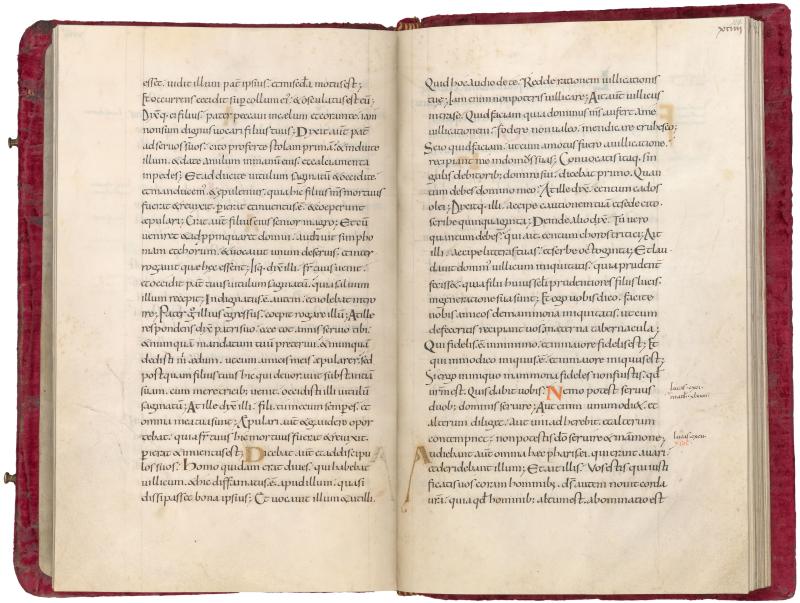 esset. uidit illum pat̄ ipsius. et misedīa motus est;
Et occurrens cecidit sup̄ collum ei'. & osculatus est eū;
Dyxq. ei filius. pater peccaui in cęlum et coram te. iam
non sum dignus uocari filius tuus; Dixit aut̄ pat̄
ad seruos suos. cito proferte stolam primā. & induite
illum. & date anulum in manū eius. et calciamenta
in pedes; Et adducite uitulum saginatū & occidite
et manducem'. & epulemur. quia hic filius m̄s mortuus
fuerat & reuixit. perierat et inuentus ē. & coeperunt
ępulari; Erat aut̄ filius eius senior in agro; Et cū
ueniret & adp̄pinquaret domui. audiuit simpho
niam et chorum. & uocauit unum de seruis. et inter
rogauit quę hęc essent; Isq. dix̄ illi. fr̄ tuus uenit.
et occidit pat̄ tuus uitulum saginatū. quia saluum
illum recepit; Indignatus ē autem. et nolebat intro
ire; Pater ḡ illius egressus. coepit rogare illū; At ille
respondens dix̄ patri suo. ecce tot annis seruio tibi.
& numquam mandatum tuū preterii. & numquā
dedisti m̄ ędum. ut cum amicis meis ępularer. sed
postquam filius tuus hic qui deuorauit substantiā
suam. cum meretricib; uenit. occidisti illi uitulū
saginatū; At ille dix̄ illi. fili. tu mecum semp̄ es. et
omnia mea tua sunt; Ępulari aut̄ & gaudere opor
tebat. quia fr̄ tuus hic mortuus fuerat & reuixit.
perierat & inuentus est; Dicebat aut̄ et ad discipu
los suos. Homo quidam erat diues. qui habebat
uillicum. & hic diffamatus ē apud illum. quasi
dissipasset bona ipsius; Et uocauit illum & ait illi.
Quid hoc audio de te. Redde rationem uillicationis
tuę; Iam enim non poteris uillicare; Ait aut̄ uillicus
intra se. Quid faciam quia dominus m̄s aufert a me
uillicationem. fodere non ualeo. mendicare erubesco;
Scio quid faciam. ut cum amotus fuero a uillicatione.
recipiant me in domos suas; Conuocatis itaq. sin
gulis debitorib; domini sui. dicebat primo. Quan
tum debes domino meo; At ille dix̄. centum cados
olei; Dixitq. illi. accipe cautionem tuā. et sede cito.
scribe quinquaginta; Deinde alio dix̄. Tu uero
quantum debes; qui ait. centum choros tritici; Ait
illi. accipe litteras tuas. et scribe octoginta; Et lau
dauit domin' uillicum iniquitatis. quia prudent̄
fecisset. quia filii huius sęli prudentiores filiis lucis.
in generatione sua sunt; Et ego uobis dico. facite
uobis amicos de mammona iniquitatis. ut cum
defeceritis recipiant uos. in aeterna tabernacula;
Qui fidelis ē in minimo. et in maiore fidelis est; Et
qui in modico iniquus ē. et in maiore iniquus est;
Si ergo in iniquo mammona fideles non fuistis. qd̄
ur̄m est. Quis dabit uobis; Nemo potest seruus
duob; dominis seruire; Aut enim unum odiet. et
alterum diliget. aut uni adherebit. et alterum
contempnet; non potestis dō seruire & mamone;
Audiebant aut̄ omnia hęc pharisei. qui erant auari.
et deridebant illum; Et ait illis. Vos estis qui iusti
ficatis uos coram hominib;. ds̄ autem nouit corda
ur̄a; quia qd̄ hominib; altum est. abominatio est